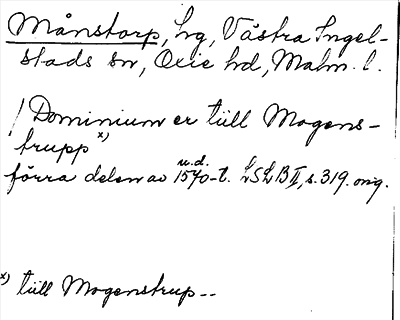 Månstorp, hg, Västra Ingel-
stads sn, Oxie hd, Malm. l.
/ Dominium er tiill Mogens-
trupp x)
u.d.
förra delen av 1570-t. LSLB II, s. 319. orig.
x) tiill Mogenstrup--